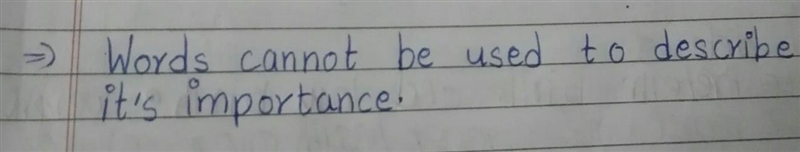 ⇒ Words cannot be used to describe
it's importance.